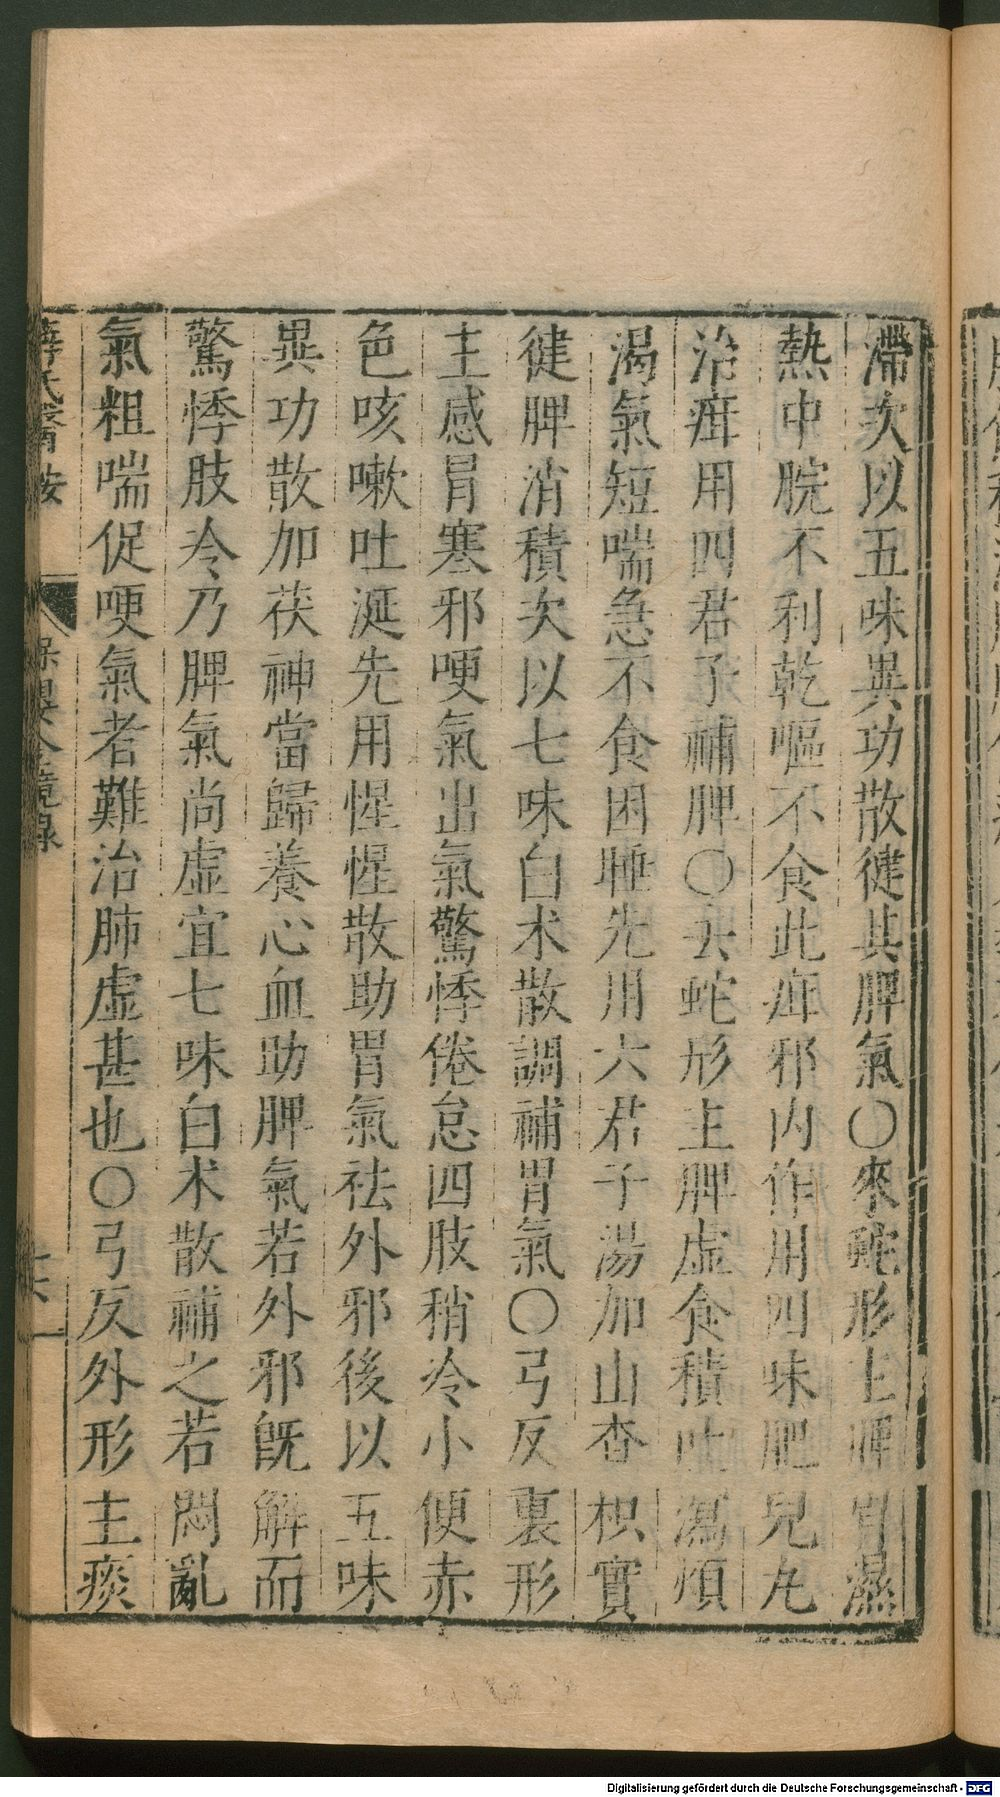 滯次以五味異功散健其脾氣○來蛇形主脾胃濕
熱中脘不利乾嘔不食此疳邪內作用四味肥兒丸
治疳用四君子補脾○去蛇形主脾虛食積吐瀉煩
渴氣短喘急不食困睡先用六君子湯加山查枳實
健脾消積次以七味白术散調補胃氣○弓反裏形
主感冒寒邪哽氣出氣驚悸倦怠四肢稍冷小便赤
色咳嗽吐涎先用惺惺散助胃氣祛外邪後以五味
異功散加茯神當歸養心血助脾氣若外邪旣解而
驚悸肢冷乃脾氣尚虛宜七味白术散補之若悶亂
氣粗喘促哽氣者難治肺虛甚也○弓反外形主痰
薛氏醫按
保嬰金鏡錄
Digitalisierung gefördert durch die Deutsche Forschungsgemeinschaft - DFG